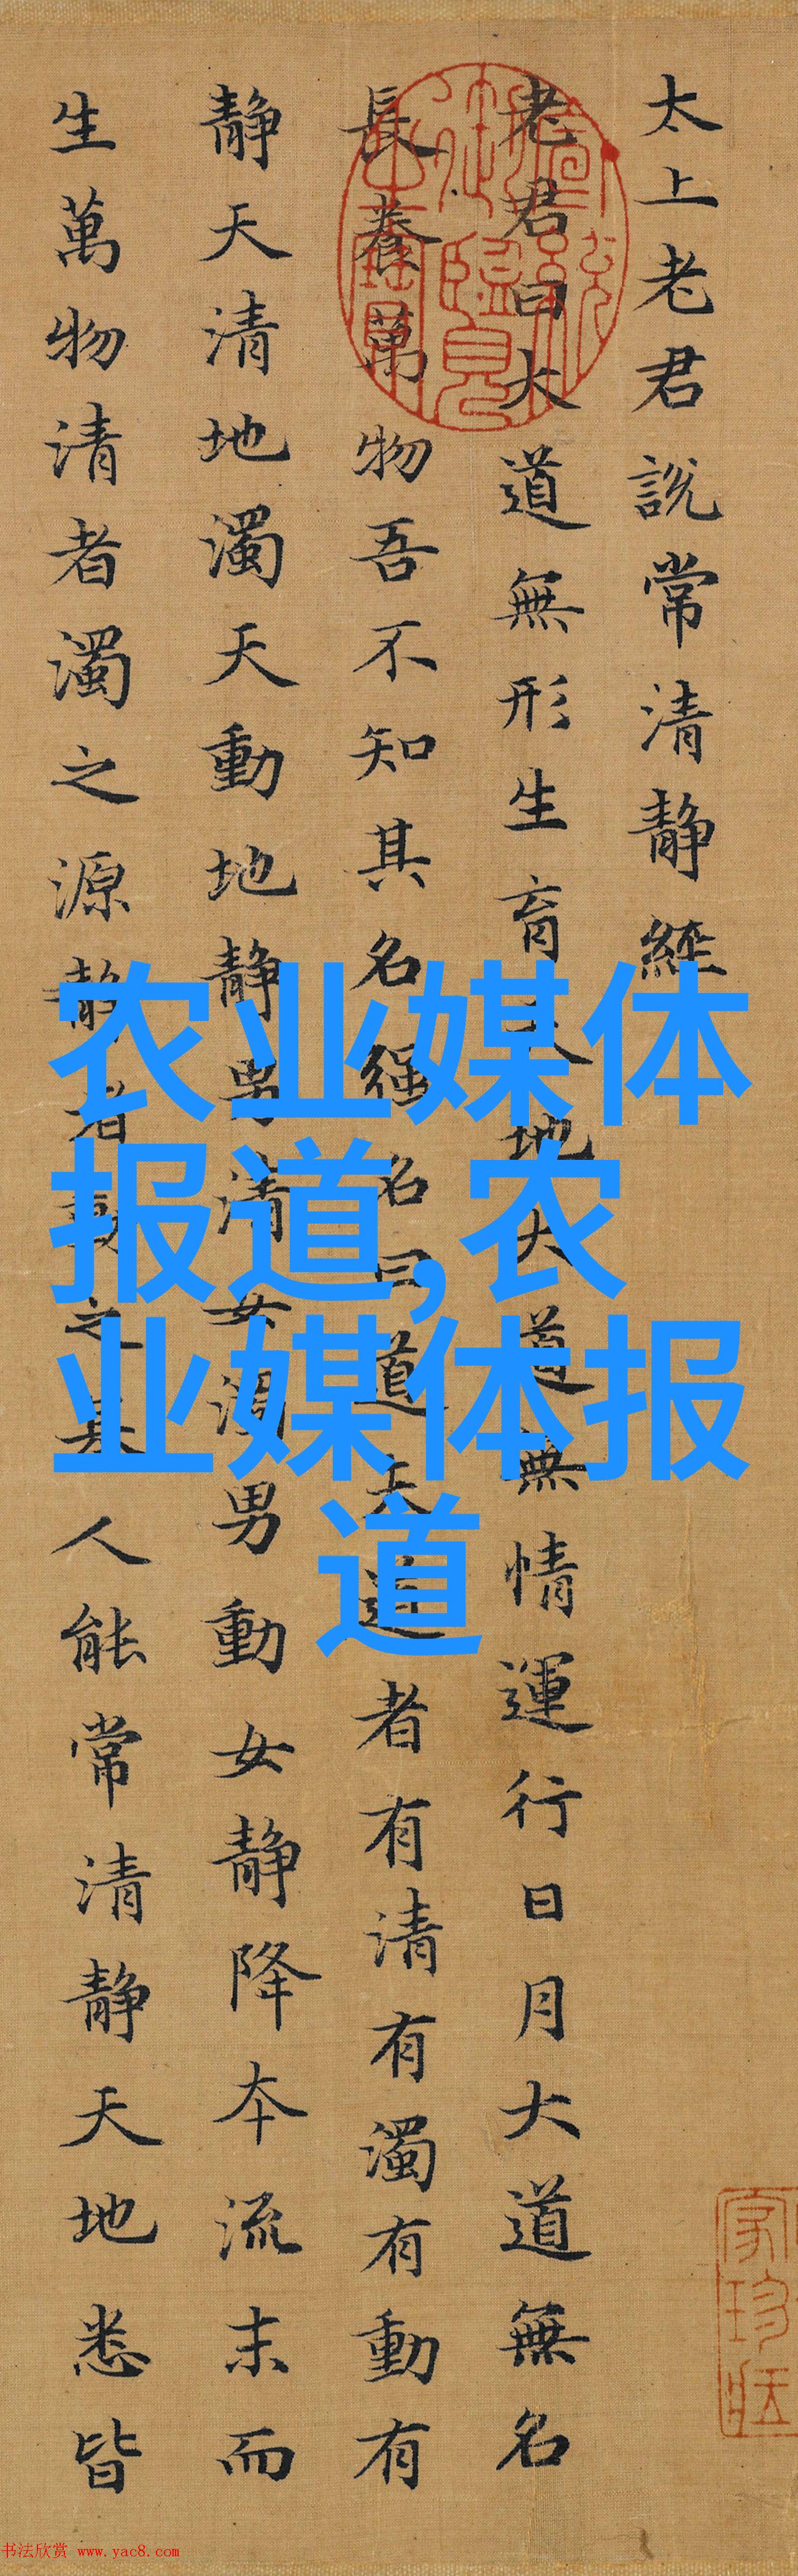 太上老君説常清静經
老君曰大道無形生育天地大道無情運行日月大道無名
長養萬物吾不知其名强名曰道夫道者有清有濁有動有
静天清地濁天動地静男清女濁男動女静降夲流末而
生萬物清者濁之源静者動之基人能常清静天地悉皆
宣統
御覽
之寶
农业媒体
报道,农
业媒体报
道
书法欣赏 www.yac8.com